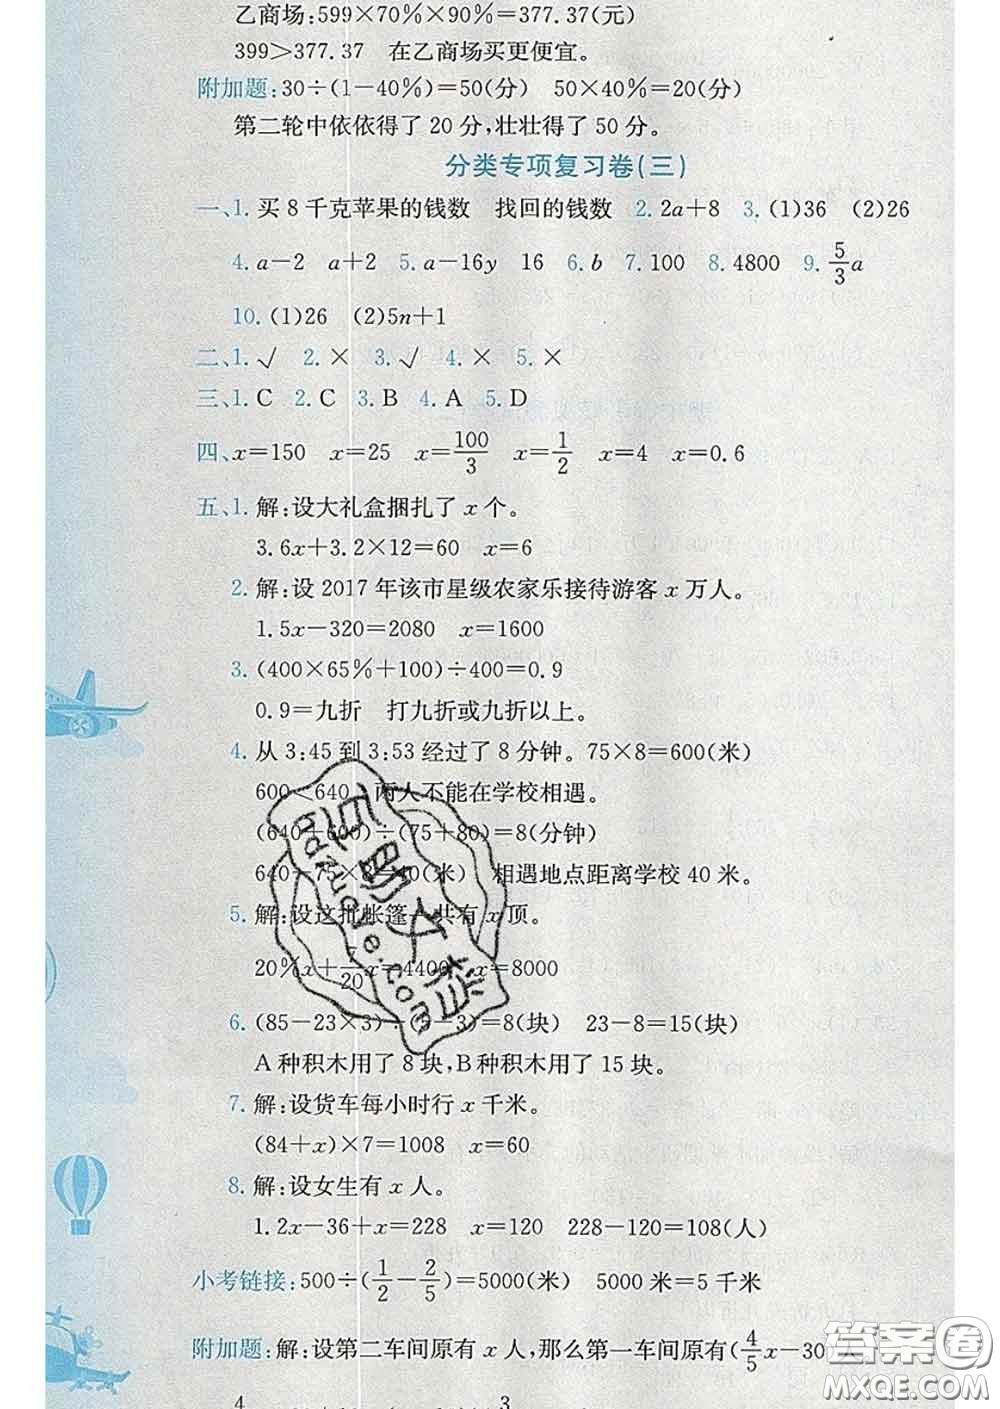 乙商场:599×70%×90%=377.37(元)
399>377.37 在乙商场买更便宜。
附加题:30÷(1-40%)=50(分) 50×40%=20(分)
第二轮中依依得了 20 分,壮壮得了 50 分。
分类专项复习卷(三)
一、1. 买 8 千克苹果的钱数 找回的钱数 2. 2a+8 3. (1)36 (2)26
4. a-2 a+2 5. a-16y 16 6. b 7. 100 8. 4800 9. 5/3 a
10. (1)26 (2)5n+1
二、1. √ 2. × 3. √ 4. × 5. ×
三、1. C 2. C 3. B 4. A 5. D
四、x=150 x=25 x=100/3 x=1/2 x=4 x=0.6
五、1. 解:设大礼盒捆扎了 x 个。
3.6x+3.2×12=60 x=6
2. 解:设 2017 年该市星级农家乐接待游客 x 万人。
1.5x-320=2080 x=1600
3. (400×65%+100)÷400=0.9
0.9=九折 打九折或九折以上。
4. 从 3:45 到 3:53 经过了 8 分钟。75×8=600(米)
600<640 两人不能在学校相遇。
(640+600)÷(75+80)=8(分钟)
640-75×8=40(米) 相遇地点距离学校 40 米。
5. 解:设这批帐篷一共有 x 顶。
20%x+7/20 x=4400 x=8000
6. (85-23×3)÷(5-3)=8(块) 23-8=15(块)
A 种积木用了 8 块,B 种积木用了 15 块。
7. 解:设货车每小时行 x 千米。
(84+x)×7=1008 x=60
8. 解:设女生有 x 人。
1.2x-36+x=228 x=120 228-120=108(人)
小考链接:500÷(1/2-2/5)=5000(米) 5000 米=5 千米
附加题:解:设第二车间原有 x 人,那么第一车间原有(4/5 x-30)人
4 3
答案圈
MXQE.COM